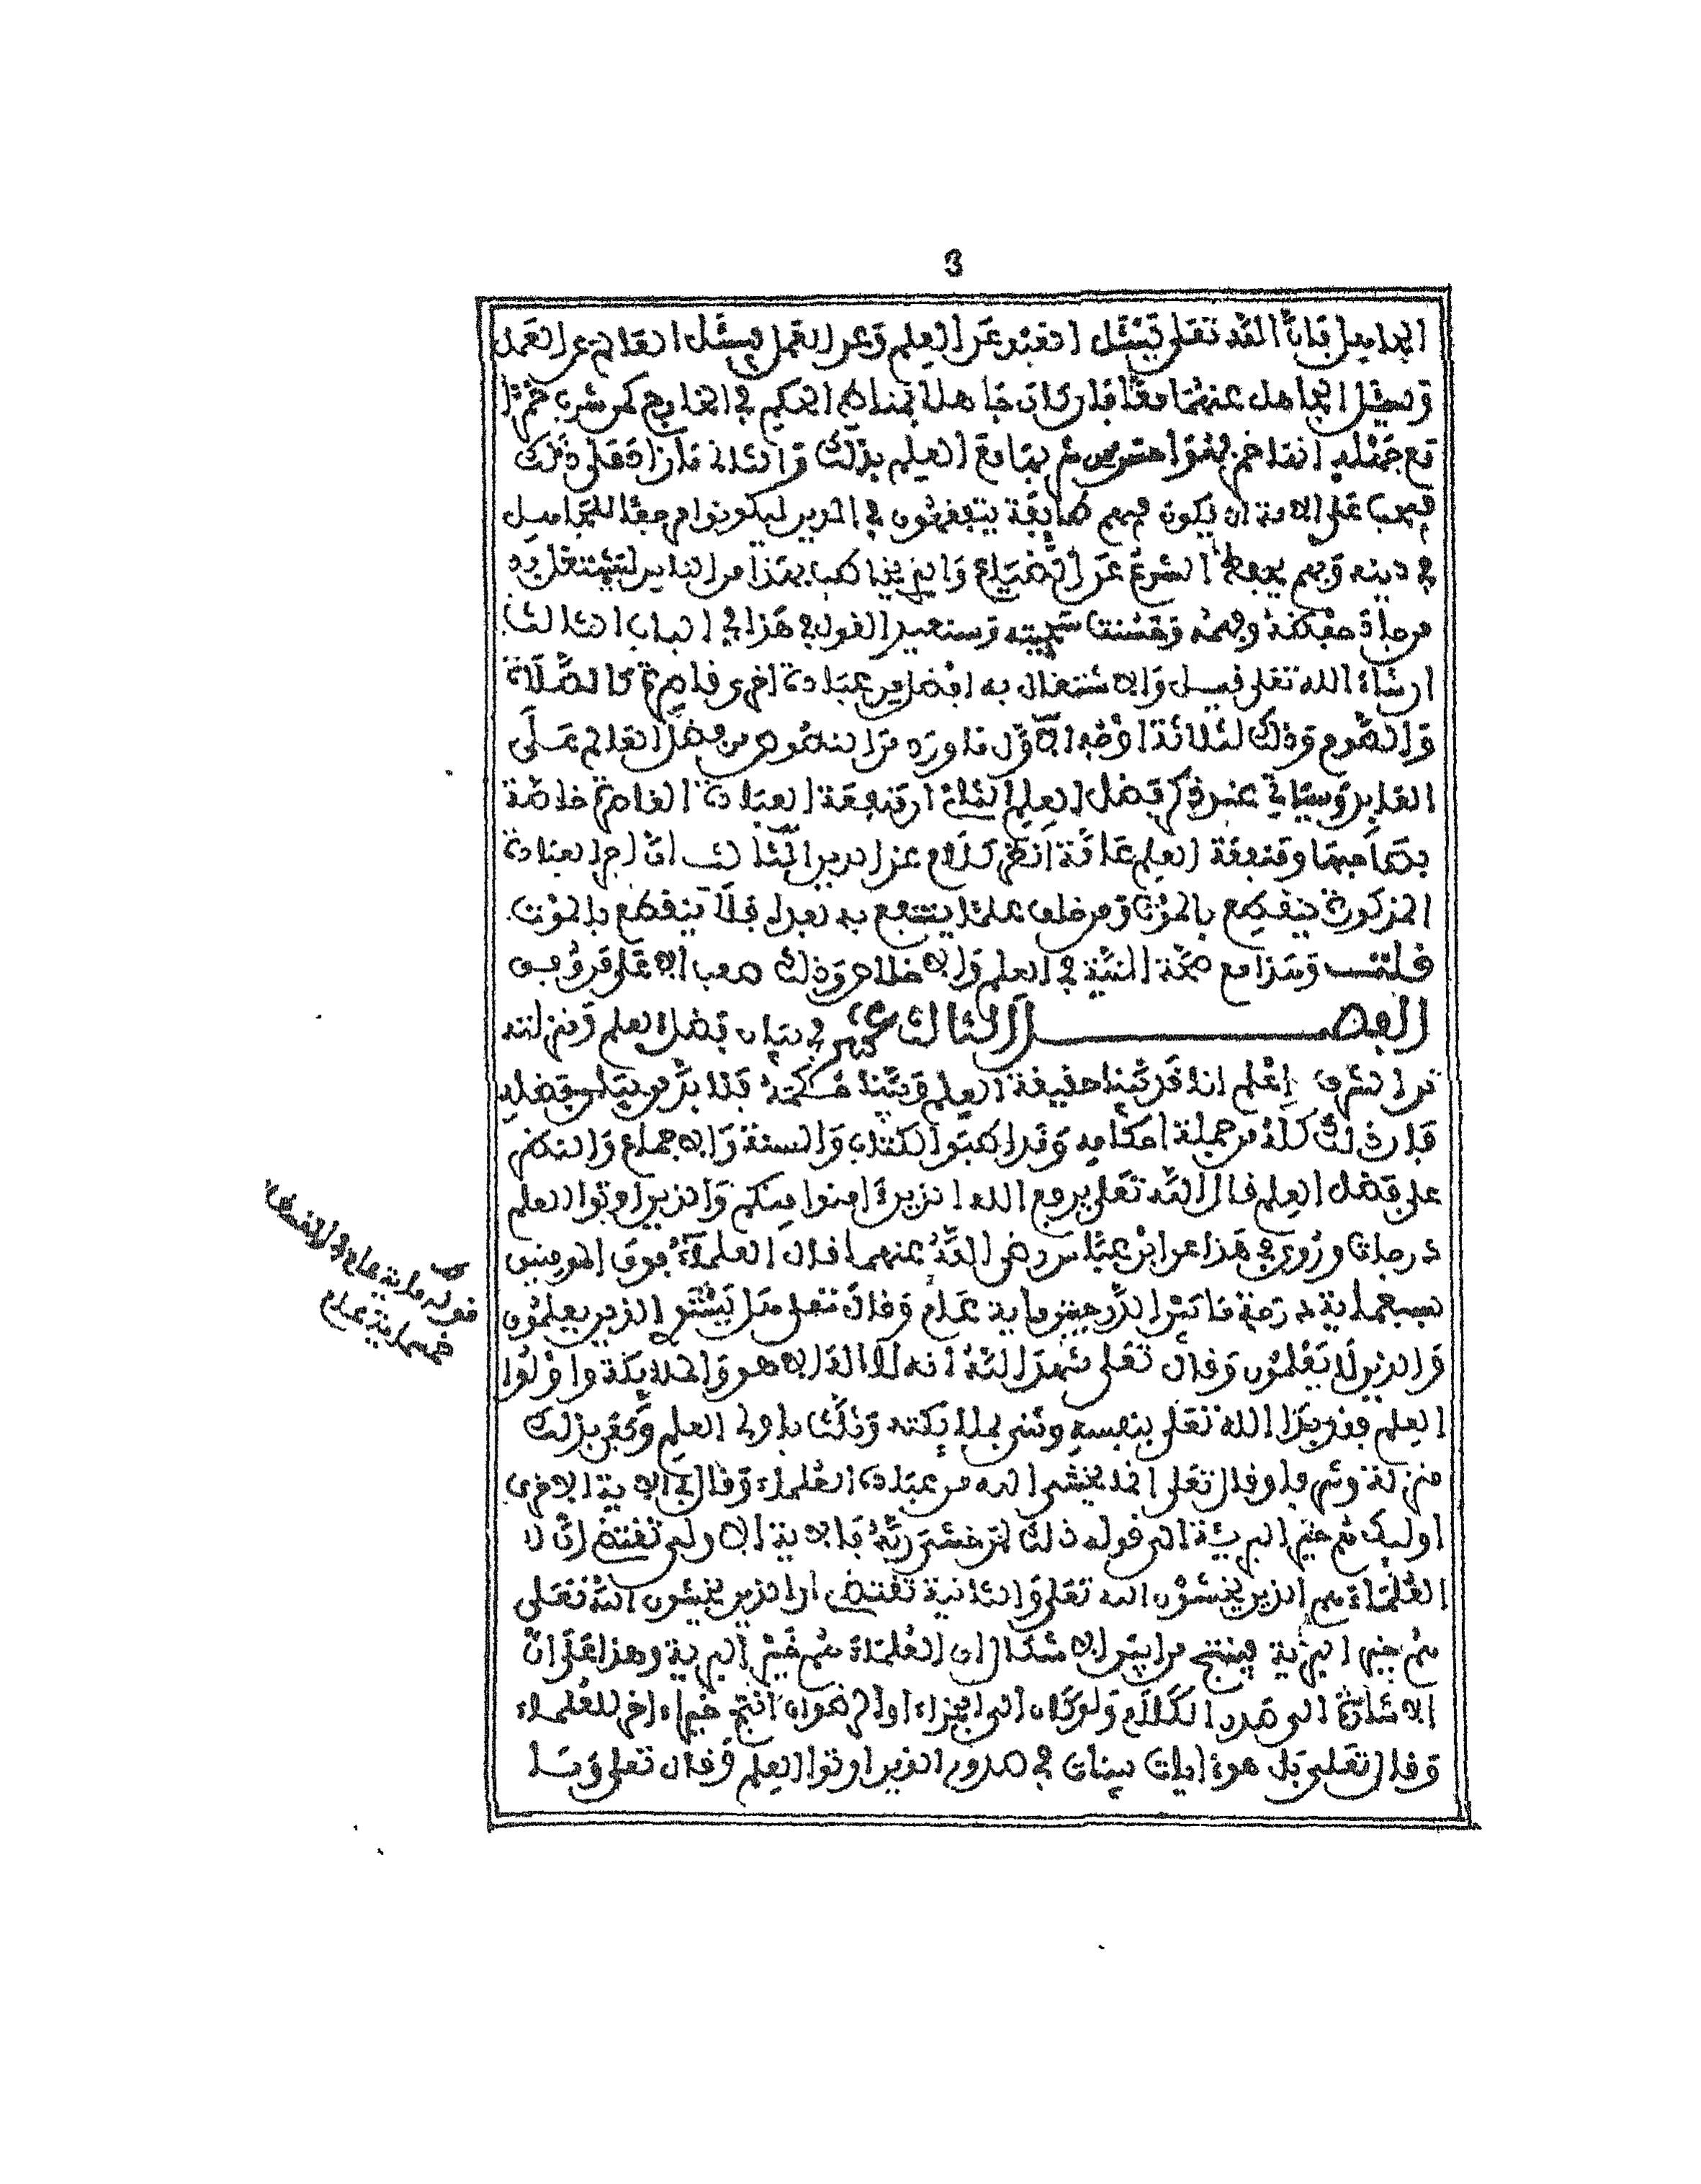 3
الجاهل فان الله تعلى يسئل العبد عن العلم وعن العمل فيسئل العالم عن العمل
ويسئل الجاهل عنهما معا فان كان جاهلا بمناط الحكم في الخارج كمن شرب خمرا
مع جهله انها خمر
فيجب على الامة ان يكون فيهم طايفة يتفقهون في الدين ليكونوا مرجعا للجاهل
في دينه وبهم يحفظ الشرع عن الضياع والذين يخاطب بهذا من الناس ليشتغل به
من جاد حفظه وفهمه وحسنت سجيته وسنعيد القول في هذا في الباب الثالث
ان شاء الله تعلى قيل والاشتغال به افضل من عبادة اخرى قاصرة كالصلاة
والصوم وذلك لثلاثة اوجه الاول ما ورد من النصوص من فضل العالم على
العابد وسياتي عند ذكر فضل العلم الثاني ان منفعة العبادة القاصرة خاصة
بصاحبها ومنفعة العلم عامة انظر كلام عز الدين الثالث ان اجر العبادة
المذكورة ينقطع بالموت ومن خلف علما ينتفع به بعده فلا ينقطع بالموت.
قلت وهذا مع صحة النية في العلم والاخلاص وذلك صعب الا على من وفق
الفصل الثالث عشر في بيان فضل العلم ومنزلته
من الشرف اعلم انا قد بينا حقيقة العلم وبينا حكمه فلا بد من بيان فضله
فان ذلك كله من جملة احكامه وقد اطبق الكتاب والسنة والاجماع والنظر
على فضل العلم قال الله تعلى يرفع الله الذين ءامنوا منكم والذين اوتوا العلم
درجات وروي في هذا عن ابن عباس رضي الله عنهما قال العلماء فوق المومنين
بسبعماية درجة ما بين الدرجتين ماية عام وقال تعلى هل يستوي الذين يعلمون
والذين لا يعلمون وقال تعلى شهد الله انه لا اله الا هو والملايكة واولوا
العلم فقد بدا الله تعلى بنفسه وثنى بملايكته وثلث باولي العلم وكفى بذلك
منزلة وشرفا وقال تعلى انما يخشى الله من عباده العلماء وقال في الاية الاخرى
اوليك هم خير البرية الى قوله ذلك لمن خشي ربه فالاية الاولى تقتضي ان
العلماء هم الذين يخشون الله تعلى والثانية تقتضي ان الذين يخشون الله تعلى
هم خير البرية فينتج من ابين الاشكال ان العلماء هم خير البرية وهذا على ان
الاشارة الى صدر الكلام ولو كان الى الجزاء او الرضوان انتج خيرا ءاخر للعلماء
وقال تعلى بل هو ءايات بينات في صدور الذين اوتوا العلم وقال تعلى